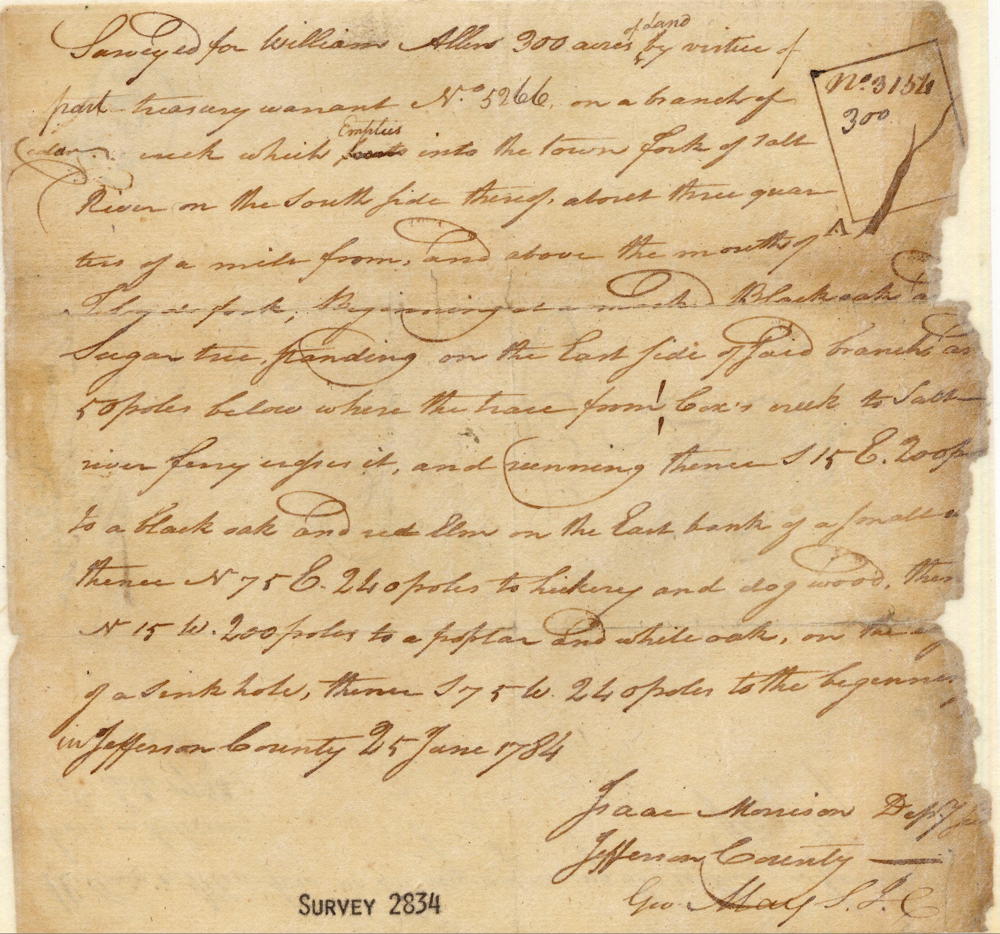 of Land
Surveyed for William Allen 300 acres by virtue of
part treasury warrant No. 5266, on a branch of
Cedar creek which Empties into the town fork of Salt
River on the South side thereof, about three quar
ters of a mile from, and above the mouth of
fork, Beginning at a Black oak
Sugar tree, standing on the East side of said branch
50 poles below where the trace from Cox's creek to Salt
river ferry crosses it, and running thence S 15 E. 200
to a black oak and red Elm on the East bank of a small
thence N 75 E. 240 poles to hickery and dogwood,
N 15 W. 200 poles to a poplar and white oak, on the
of a sink hole, thence S 75 W. 240 poles to the
in Jefferson County 25 June 1784
Isaac Morrison
Jefferson County
Geo May S. J. C
No 3154
300
A
SURVEY 2834